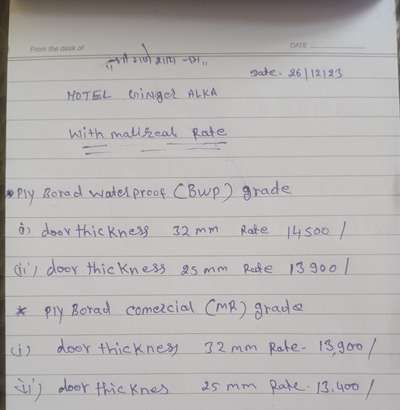 From the desk of
DATE
॥ श्री गणेशाय नमः ॥
Date - 26/12/23
HOTEL Ginger ALKA
With matireal Rate
* Ply Borad waterproof (BWP) grade
(i) door thickness 32 mm Rate 14500/
(ii) door thickness 25 mm Rate 13900/
* Ply Borad comercial (MR) grade
(i) door thickness 32 mm Rate - 13,900/
(ii) door thicknes 25 mm Rate - 13,400/